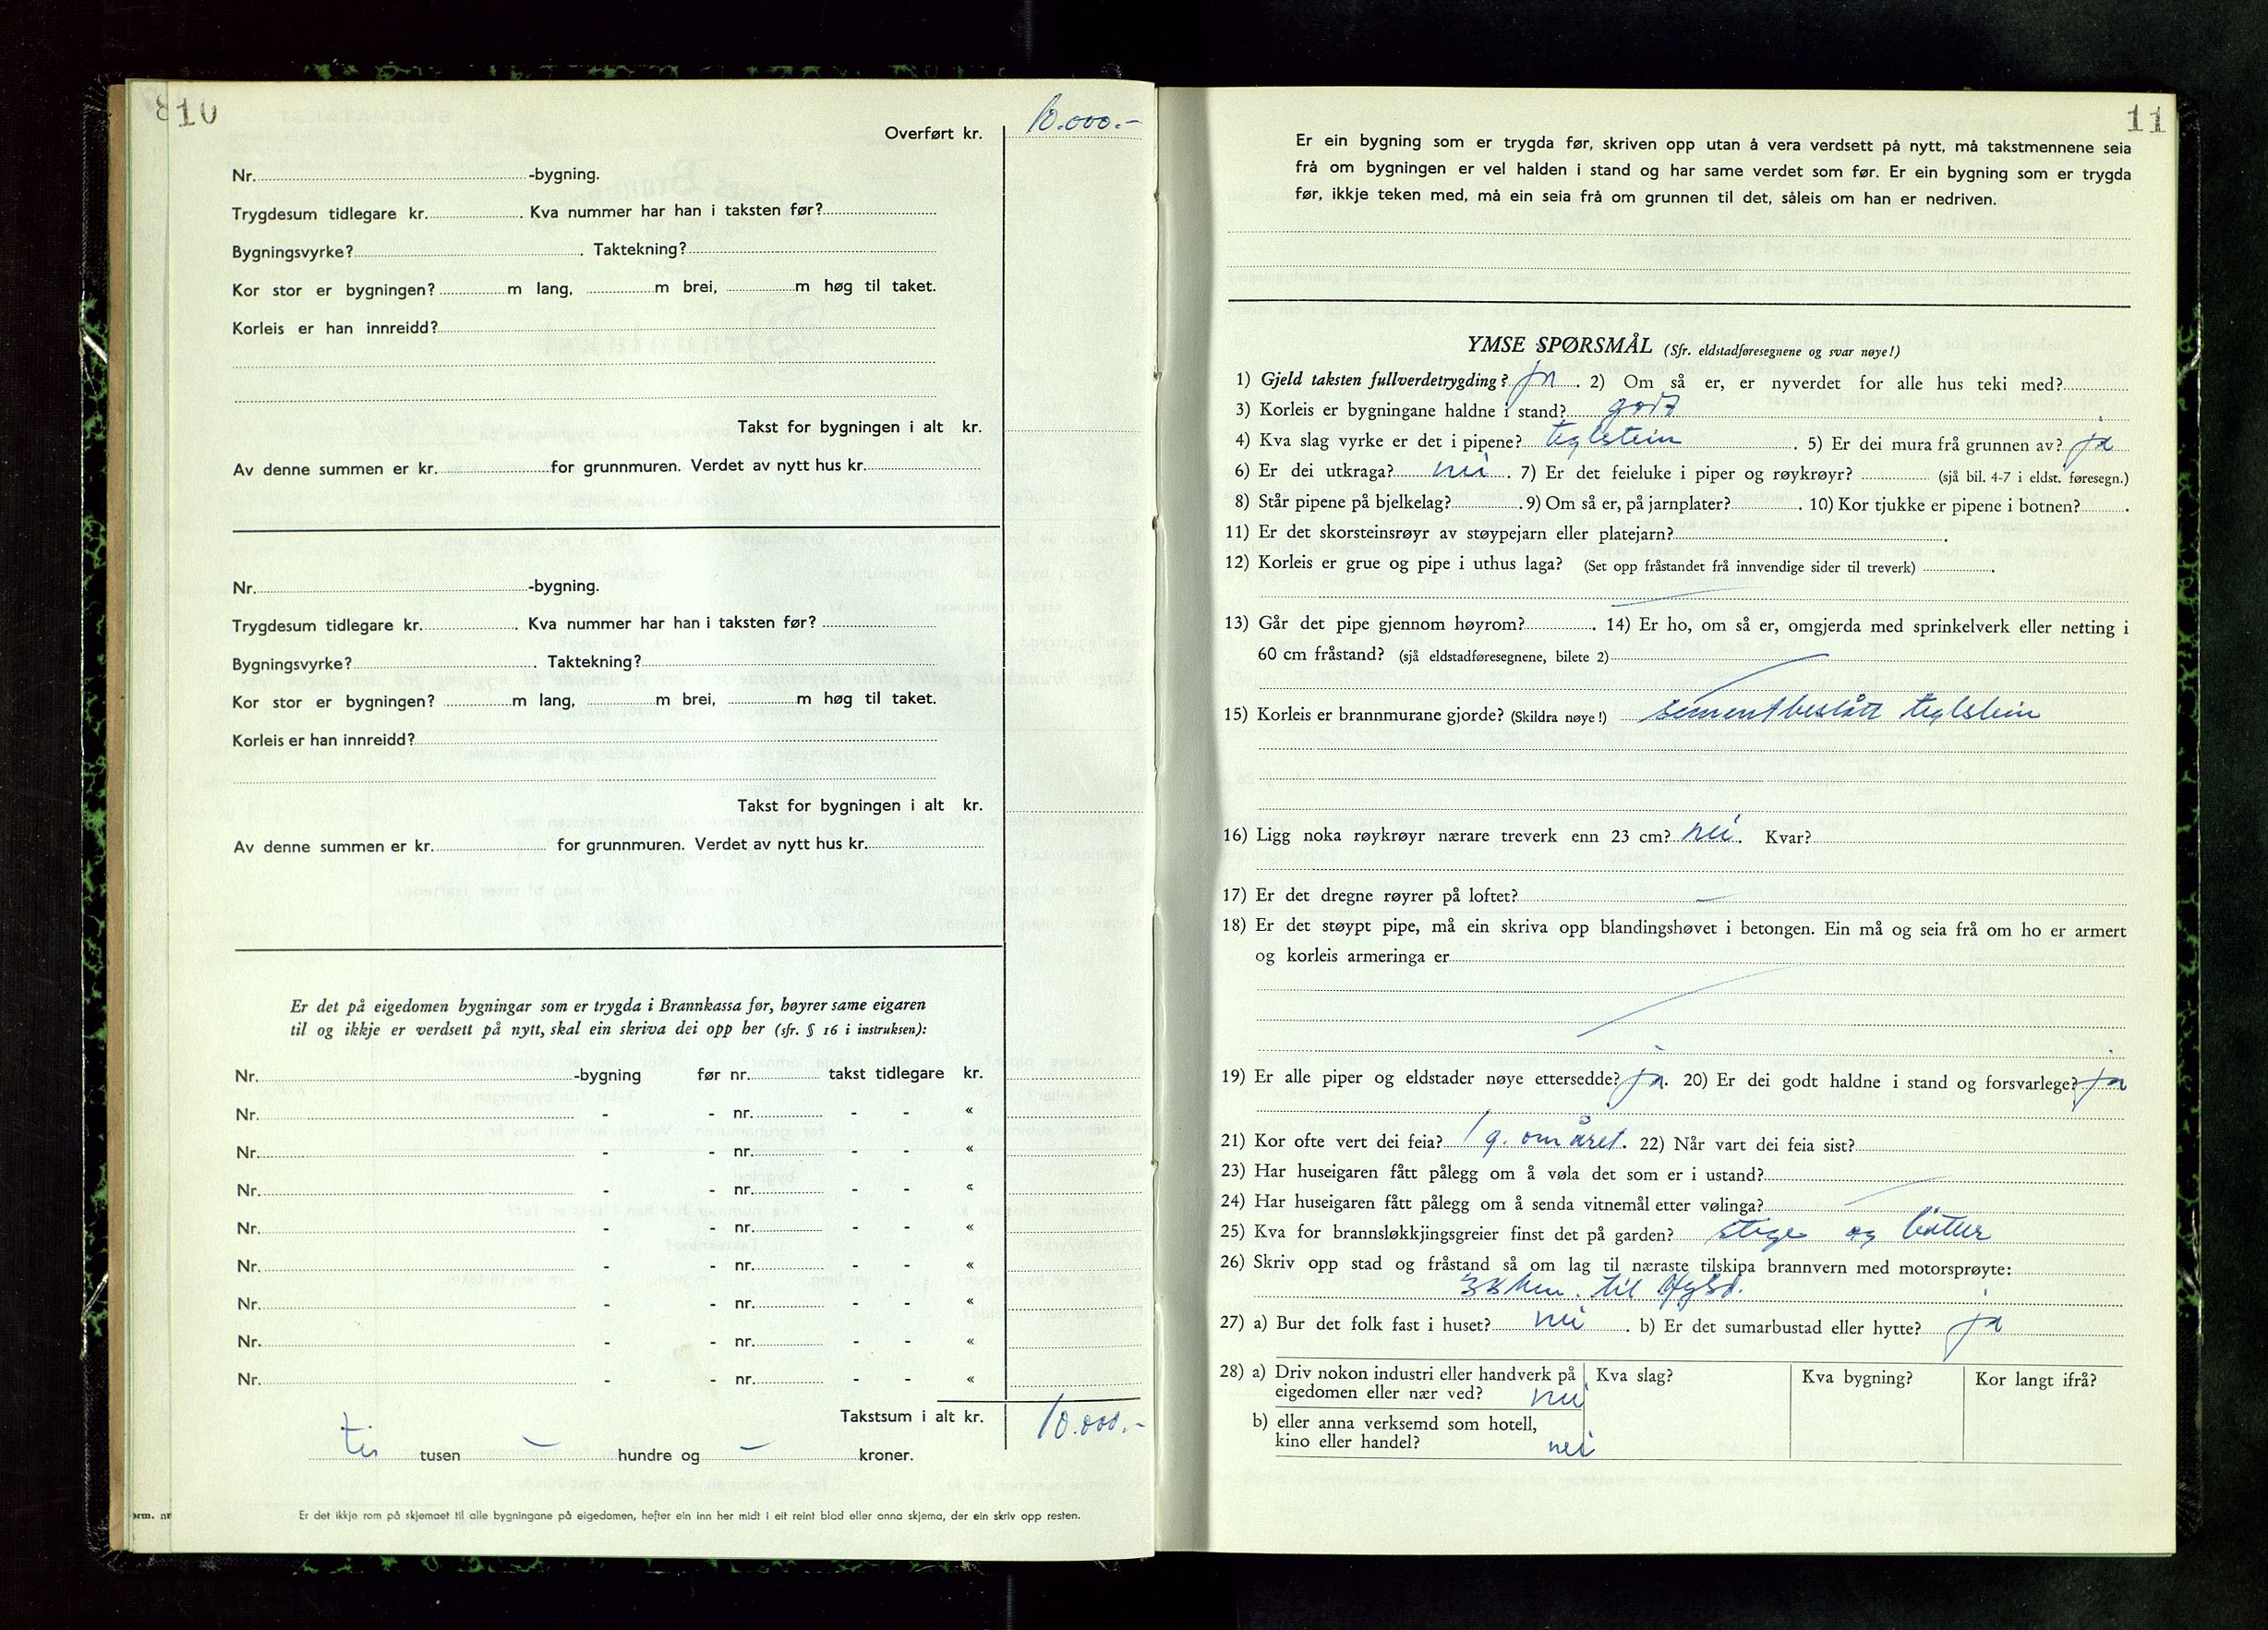 810
Overført kr. 10.000.-
Nr. -bygning.
Trygdesum tidlegare kr. . Kva nummer har han i taksten før?
Bygningsvyrke? . Taktekning?
Kor stor er bygningen? m lang, m brei, m høg til taket.
Korleis er han innreidd?
Takst for bygningen i alt kr.
Av denne summen er kr. for grunnmuren. Verdet av nytt hus kr.
Nr. -bygning.
Trygdesum tidlegare kr. . Kva nummer har han i taksten før?
Bygningsvyrke? . Taktekning?
Kor stor er bygningen? m lang, m brei, m høg til taket.
Korleis er han innreidd?
Takst for bygningen i alt kr.
Av denne summen er kr. for grunnmuren. Verdet av nytt hus kr.
Er det på eigedomen bygningar som er trygda i Brannkassa før, høyrer same eigaren
til og ikkje er verdsett på nytt, skal ein skriva dei opp her (sfr. § 16 i instruksen):
Nr. -bygning før nr. takst tidlegare kr.
Nr. - - nr. - - «
Nr. - - nr. - - «
Nr. - - nr. - - «
Nr. - - nr. - - «
Nr. - - nr. - - «
Nr. - - nr. - - «
Nr. - - nr. - - «
Nr. - - nr. - - «
Takstsum i alt kr. 10.000.-
ti tusen - hundre og - kroner.
orm. nr
Er det ikkje rom på skjemaet til alle bygningane på eigedomen, hefter ein inn her midt i eit reint blad eller anna skjema, der ein skriv opp resten.
11
Er ein bygning som er trygda før, skriven opp utan å vera verdsett på nytt, må takstmennene seia
frå om bygningen er vel halden i stand og har same verdet som før. Er ein bygning som er trygda
før, ikkje teken med, må ein seia frå om grunnen til det, såleis om han er nedriven.
YMSE SPØRSMÅL (Sfr. eldstadføresegnene og svar nøye!)
1) Gjeld taksten fullverdetrygding? ja . 2) Om så er, er nyverdet for alle hus teki med?
3) Korleis er bygningane haldne i stand? godt
4) Kva slag vyrke er det i pipene? teglstein . 5) Er dei mura frå grunnen av? ja
6) Er dei utkraga? nei . 7) Er det feieluke i piper og røykrøyr? (sjå bil. 4-7 i eldst. føresegn.)
8) Står pipene på bjelkelag? . 9) Om så er, på jarnplater? . 10) Kor tjukke er pipene i botnen? .
11) Er det skorsteinsrøyr av støypejarn eller platejarn? .
12) Korleis er grue og pipe i uthus laga? (Set opp fråstandet frå innvendige sider til treverk) .
13) Går det pipe gjennom høyrom? . 14) Er ho, om så er, omgjerda med sprinkelverk eller netting i
60 cm fråstand? (sjå eldstadføresegnene, bilete 2)
15) Korleis er brannmurane gjorde? (Skildra nøye!) sementbeslått teglstein
16) Ligg noka røykrøyr nærare treverk enn 23 cm? nei . Kvar?
17) Er det dregne røyrer på loftet? -
18) Er det støypt pipe, må ein skriva opp blandingshøvet i betongen. Ein må og seia frå om ho er armert
og korleis armeringa er
19) Er alle piper og eldstader nøye ettersedde? ja. 20) Er dei godt haldne i stand og forsvarlege? ja
21) Kor ofte vert dei feia? 1 g. om året. 22) Når vart dei feia sist?
23) Har huseigaren fått pålegg om å vøla det som er i ustand?
24) Har huseigaren fått pålegg om å senda vitnemål etter vølinga?
25) Kva for brannsløkkjingsgreier finst det på garden? stige og bøtter
26) Skriv opp stad og fråstand så om lag til næraste tilskipa brannvern med motorsprøyte:
km. til
27) a) Bur det folk fast i huset? nei . b) Er det sumarbustad eller hytte? ja
28) a) Driv nokon industri eller handverk på Kva slag? Kva bygning? Kor langt ifrå?
eigedomen eller nær ved? nei
b) eller anna verksemd som hotell,
kino eller handel? nei